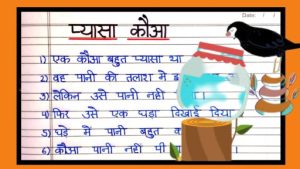 प्यासा कौआ
Date: / /
1) एक कौआ बहुत प्यासा था
2) वह पानी की तलाश में
3) लेकिन उसे पानी नहीं
4) फिर उसे एक घड़ा दिखाई दिया
5) घड़े में पानी बहुत
6) कौआ पानी नहीं पी